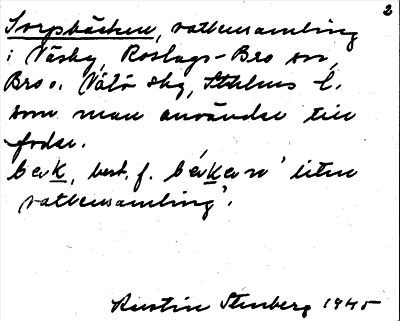 2
Sorpbäcken, vattensamling
i Väsby, Roslags-Bro sn,
Bro o. Vätö skg, Sthlms l.
som man använder till
foder.
bævk, best. f. bævkæn 'liten
vattensamling'.
Stenberg 1945